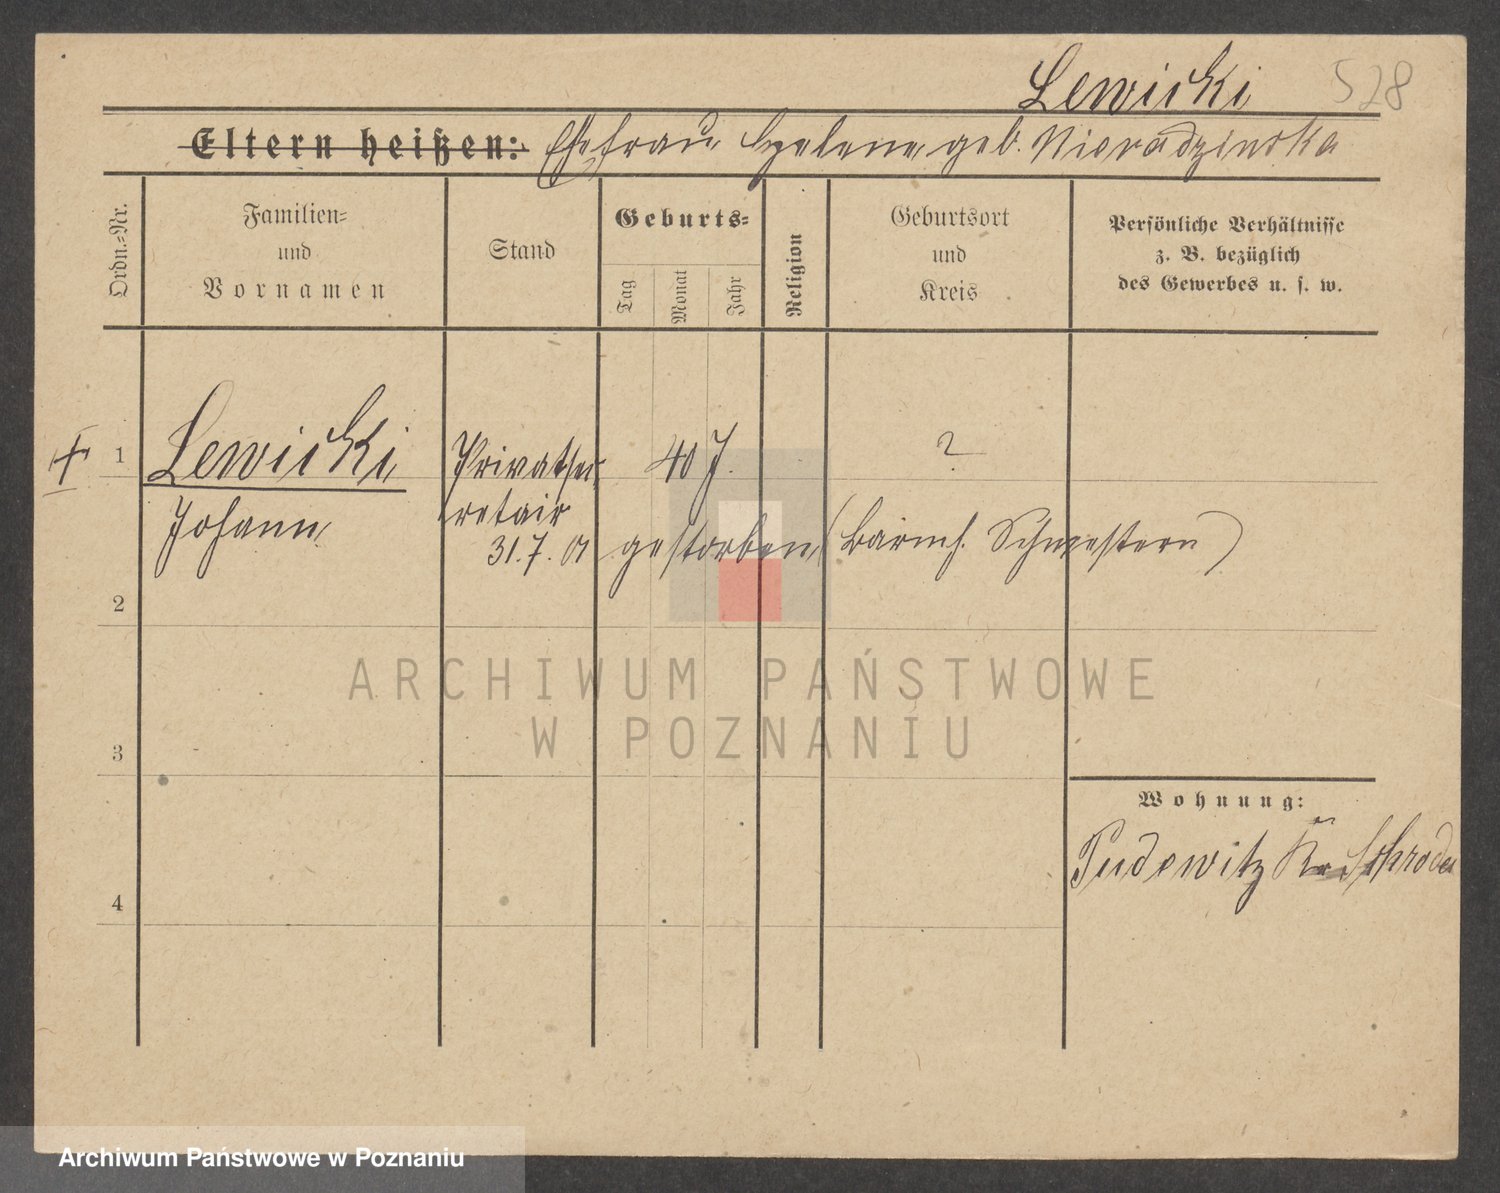 Lewicki 528
Eltern heißen: Ehefrau Helene, geb. Nieradzinska
Ordn.=Nr.
Familien=
und
Vornamen
Stand
Geburts=
Tag
Monat
Jahr
Religion
Geburtsort
und
Kreis
Persönliche Verhältnisse
z. B. bezüglich
des Gewerbes u. s. w.
1 Lewicki Privatsec 40 J. ?
Johann retair
31.7.01 gestorben (barmh. Schwestern)
2
3
Wohnung:
Pudewitz Kr. Schroda
4
ARCHIWUM PAŃSTWOWE
W POZNANIU
Archiwum Państwowe w Poznaniu